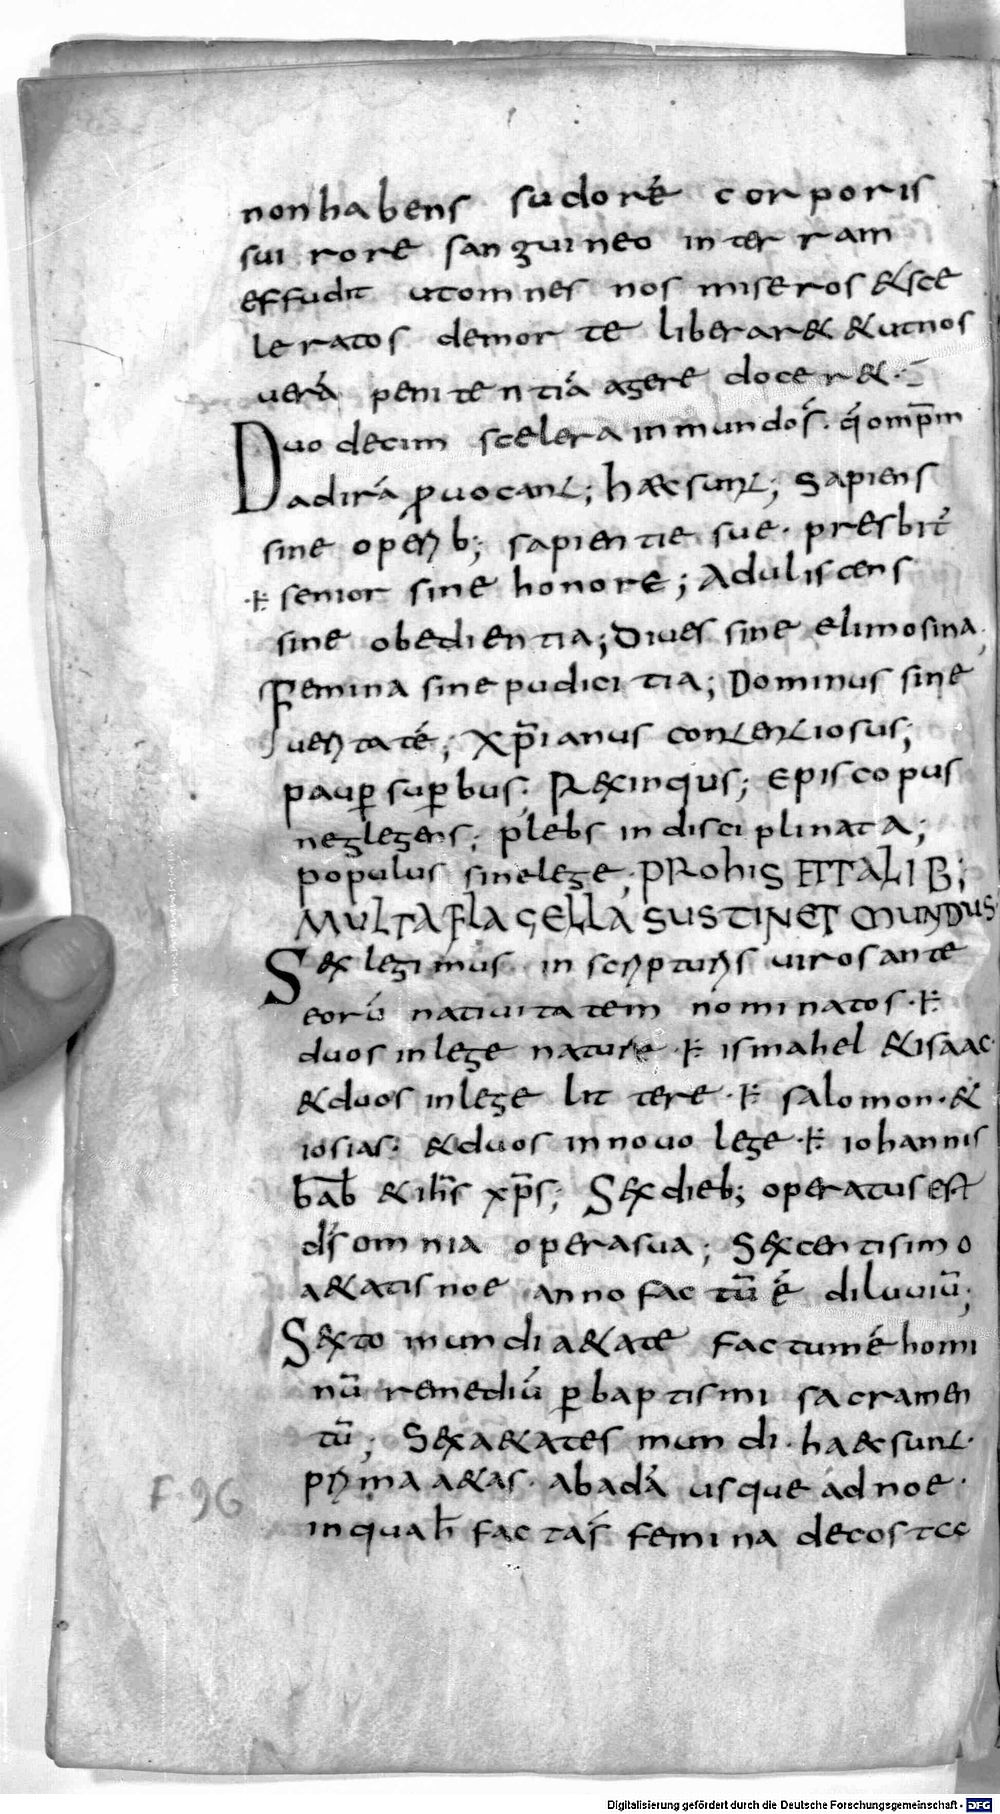 nonhabens sudorē corporis
sui rore sanguineo interram
effudit utomnes nos miseros &sce
leratos demorte liberar& &utnos
verā penitentiā agere docer&.
Duodecim scelera inmundoś. q́ omp̄m
adirā ꝓuocant; hæcsunt; Sapiens
sine operib; sapientie sue. presbit̄
.ꝉ senior sine honore; Aduliscens
sine obedientia; Dives sine elimosina,
Femina sinepudicitia; Dominus sine
veritate; Xp̄ianus contentiosus;
paup̄ sup̄bus; Rexinqius; Episcopus
neglegens; plebs indisciplinata;
populus sinelege; PROhis ETTALIB;
MULTAFLAGELLA SUSTINET MUNDUS
Sex legimus in scripturis virosante
eorū nativitatem nominatos.ꝉ
duos inlege nature.ꝉ ismahel &isaac.
&duos inlege littere.ꝉ salomon.&
iosias. &duos innovo lege.ꝉ iohannis
b̄ab̄ &ih̄s xp̄s; Sexdieb; operatusest
d̄s omnia operasua; Sexcentisimo
a&atis noe anno factū ē diluviū;
Sexto mundi a&ate factumē homi
nū remediū p̄ baptismi sacramen
tū; Sexa&ates mundi. haecsunt.
prima a&as. abadā usque adnoe.
inquah̄ factaś femina decosta
F. 96
Digitalisierung gefördert durch die Deutsche Forschungsgemeinschaft - DFG